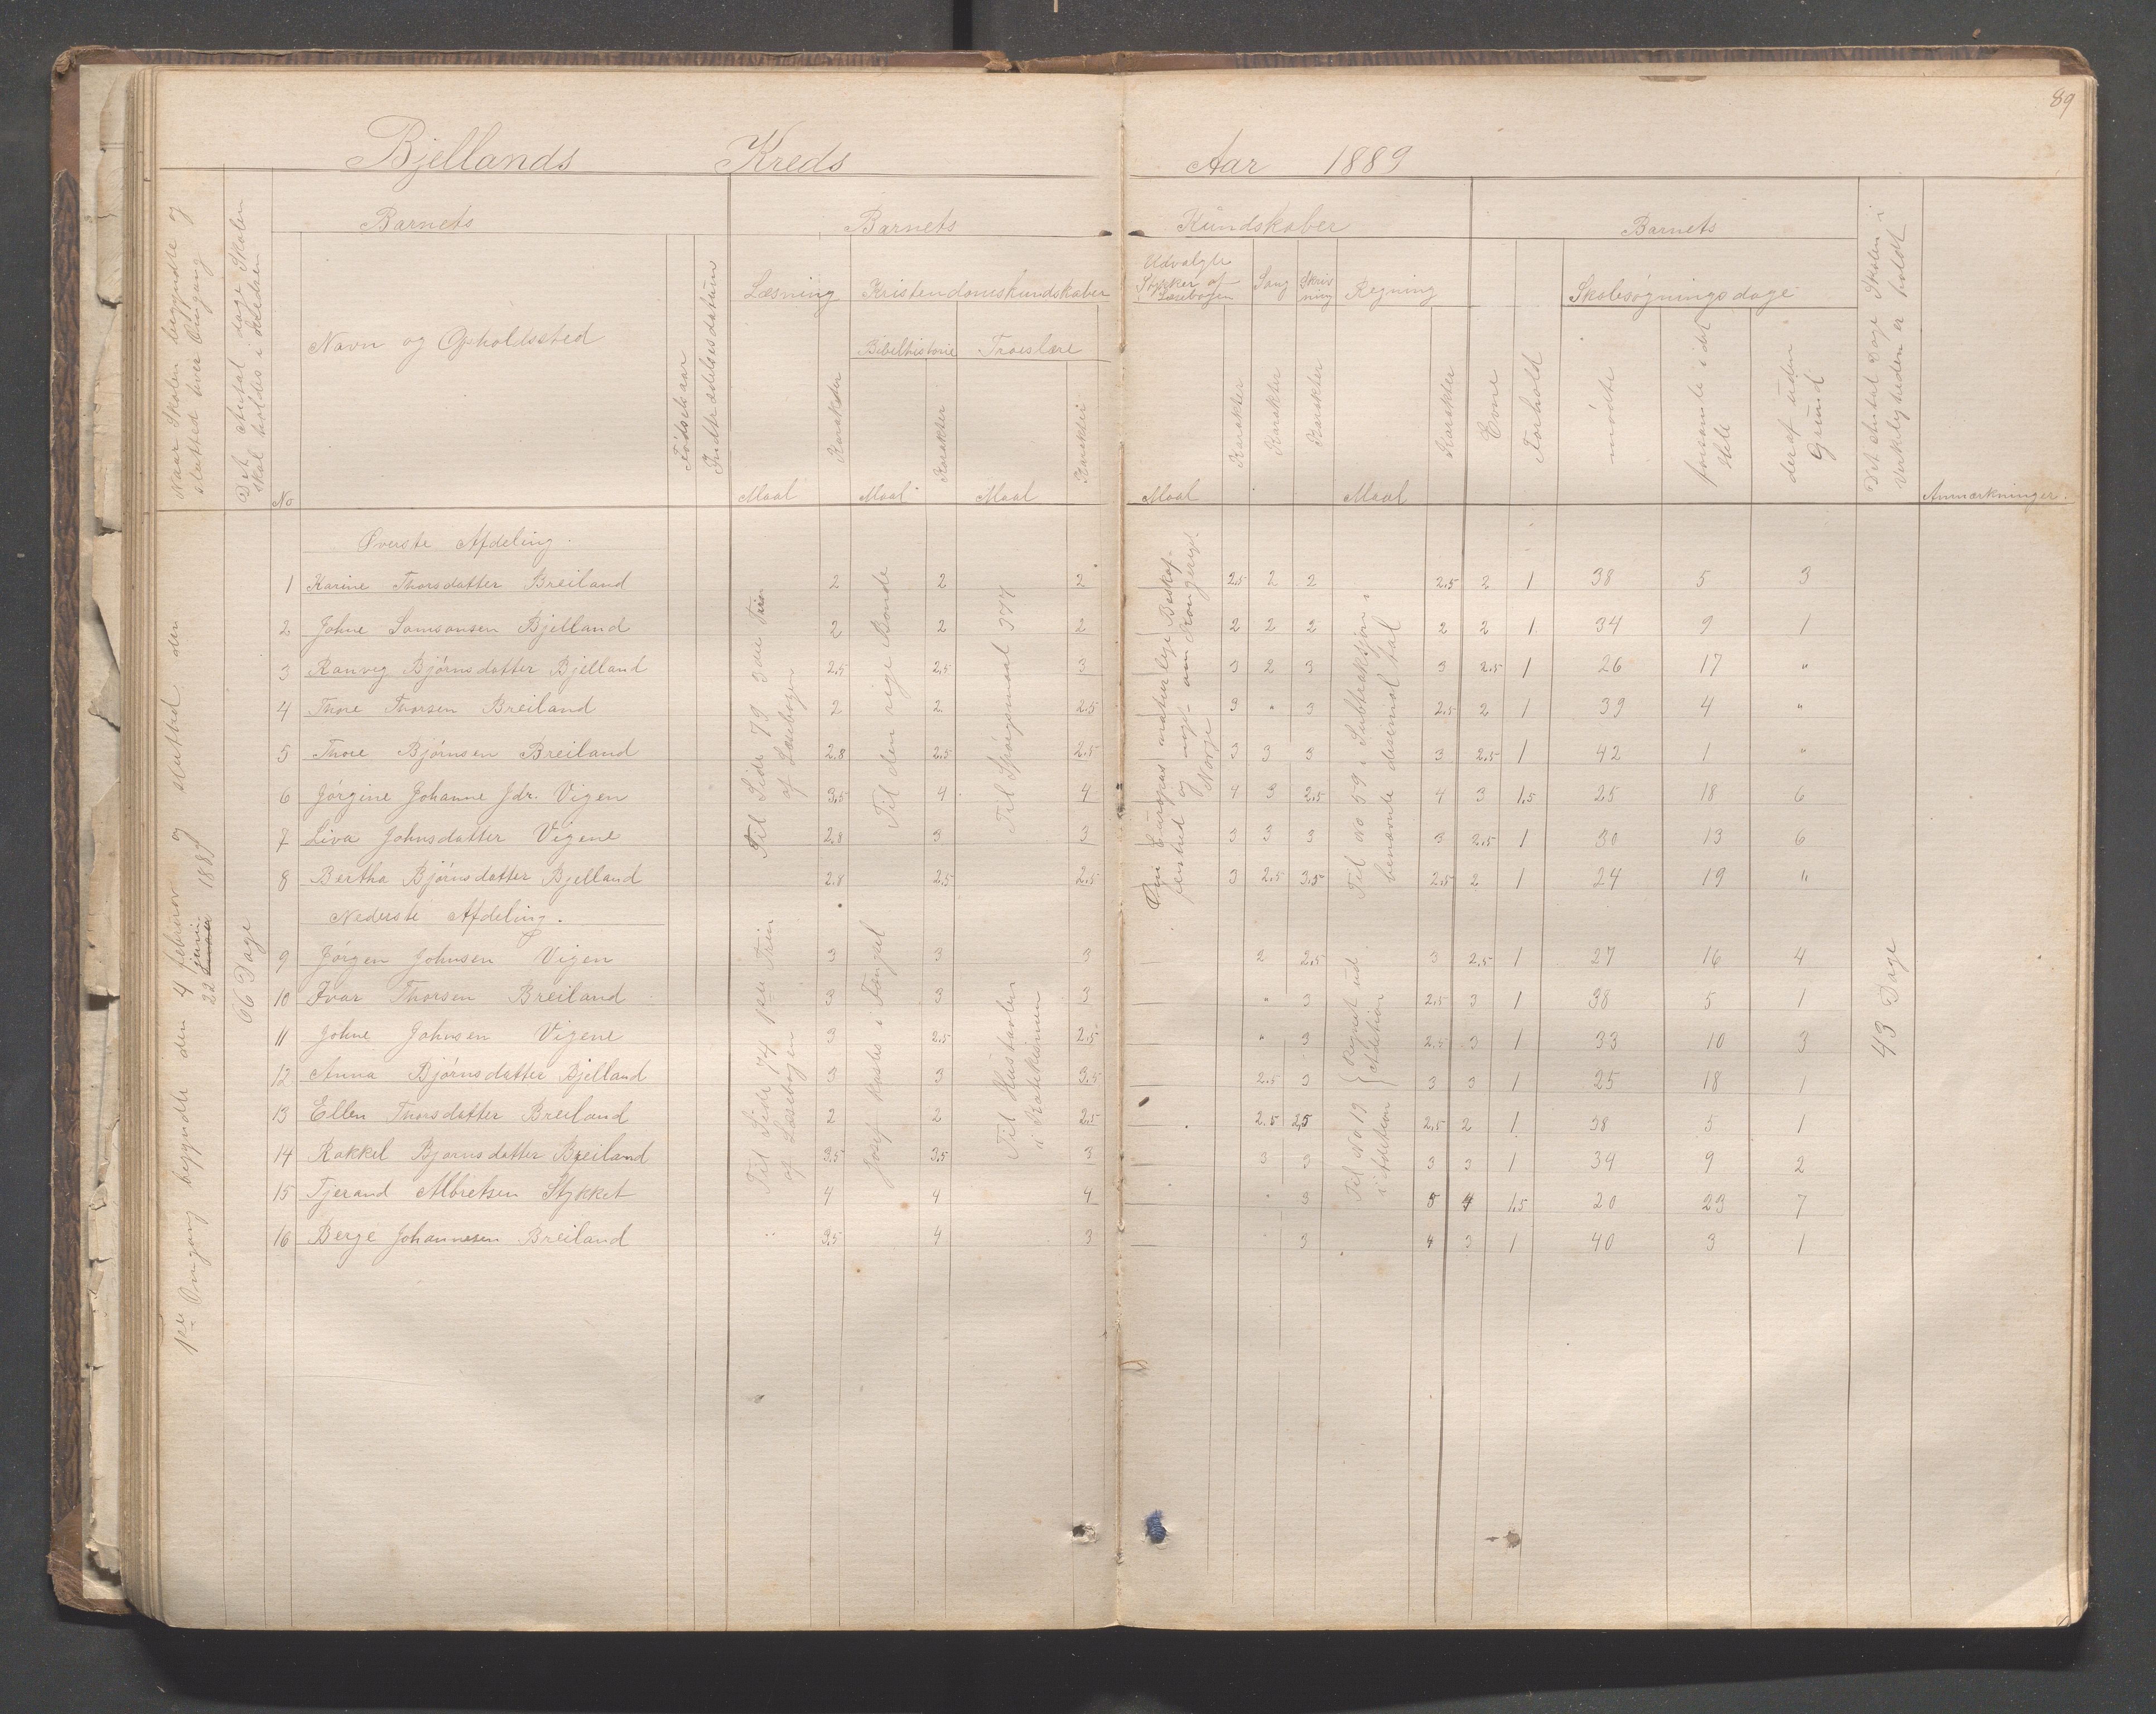 89
Bjellands Kreds Aar 1889
Naar Skolen begyndte og slutted hver Omgang
Det Antal dage Skolen skal holdes i Kredsen
Barnets
Barnets Kundskaber
Barnets
No
Navn og Opholdssted
Fødselsaar
Indtrædelsesdatum
Læsning
Kristendomskundskaber
Bibelhistorie
Troeslære
Maal Karakter
Maal Karakter
Maal Karakter
Udvalgte Stykker af Læsebogen
Sang
Skrivning
Regning
Maal Karakter
Karakter
Karakter
Maal Karakter
Evne
Forhold
Skolesøgningsdage
mødte
forsømte i det Hele
deraf uden Grund
Det Antal Dage Skolen i Virkeligheden er holdt
Anmærkninger.
1ste Omgang begyndte den 4 februar og slutted den 22 juni 1889
66 Dage
Øverste Afdeling.
1 Karine Thorsdatter Breiland 2 2 2 2.5 2 2 2.5 2 1 38 5 3
2 Johne Samsonsen Bjelland 2 2 2 2 2 2 2 2 1 34 9 1
3 Ranveg Bjørnsdatter Bjelland 2.5 2.5 3 3 2 3 3 2.5 1 26 17 "
4 Thore Thorsen Breiland 2 2. 2.5 3 " 3 2.5 2 1 39 4 "
5 Thore Bjørnsen Breiland 2.8 2.5 2.5 3 3 3 3 2.5 1 42 1 "
6 Jørgine Johanne Jdr. Vigen 3.5 4 4 4 3 2.5 4 3 1.5 25 18 6
7 Liva Johnsdatter Vigene 2.8 3 3 3 3 3 3 2.5 1 30 13 6
8 Bertha Bjørnsdatter Bjelland 2.8 2.5 2.5 3 2.5 3.5 2.5 2 1 24 19 "
Til Side 79 3die Trin af Læsebogen
Til den rige Bonde
Til Spørgsmaal 377
Om Europas naturlige Beskaffenhed og noget om Kongeriget Norge
Til No 59 i Subtraksjon i benævnte desimal tal
Nederste Afdeling.
9 Jørgen Johnsen Vigen 3 3 3 2 2.5 3 2.5 1 27 16 4
10 Ivar Thorsen Breiland 3 3 3 " 3 2.5 3 1 38 5 1
11 Johne Johnsen Vigene 3 2.5 2.5 " 3 2.5 3 1 33 10 3
12 Anna Bjørnsdatter Bjelland 3 3 3.5 2.5 3 3 3 1 25 18 1
13 Ellen Thorsdatter Breiland 2 2 2.5 2.5 2,5 2.5 2 1 38 5 1
14 Rakkel Bjørnsdatter Breiland 3.5 3.5 3 3 3 3 3 1 34 9 2
15 Tjerand Albretsen Stykket 4 4 4 " 3 5 4 1.5 20 23 7
16 Berge Johannesen Breiland 3.5 4 3 3 4 3 1 40 3 1
Til Side 74 1ste Trin af Læsebogen
Josef kastes i Fængsel
Til Hustavlen i Katekismen
Regnet ud Addition
Til No 19 i Addition
43 Dage